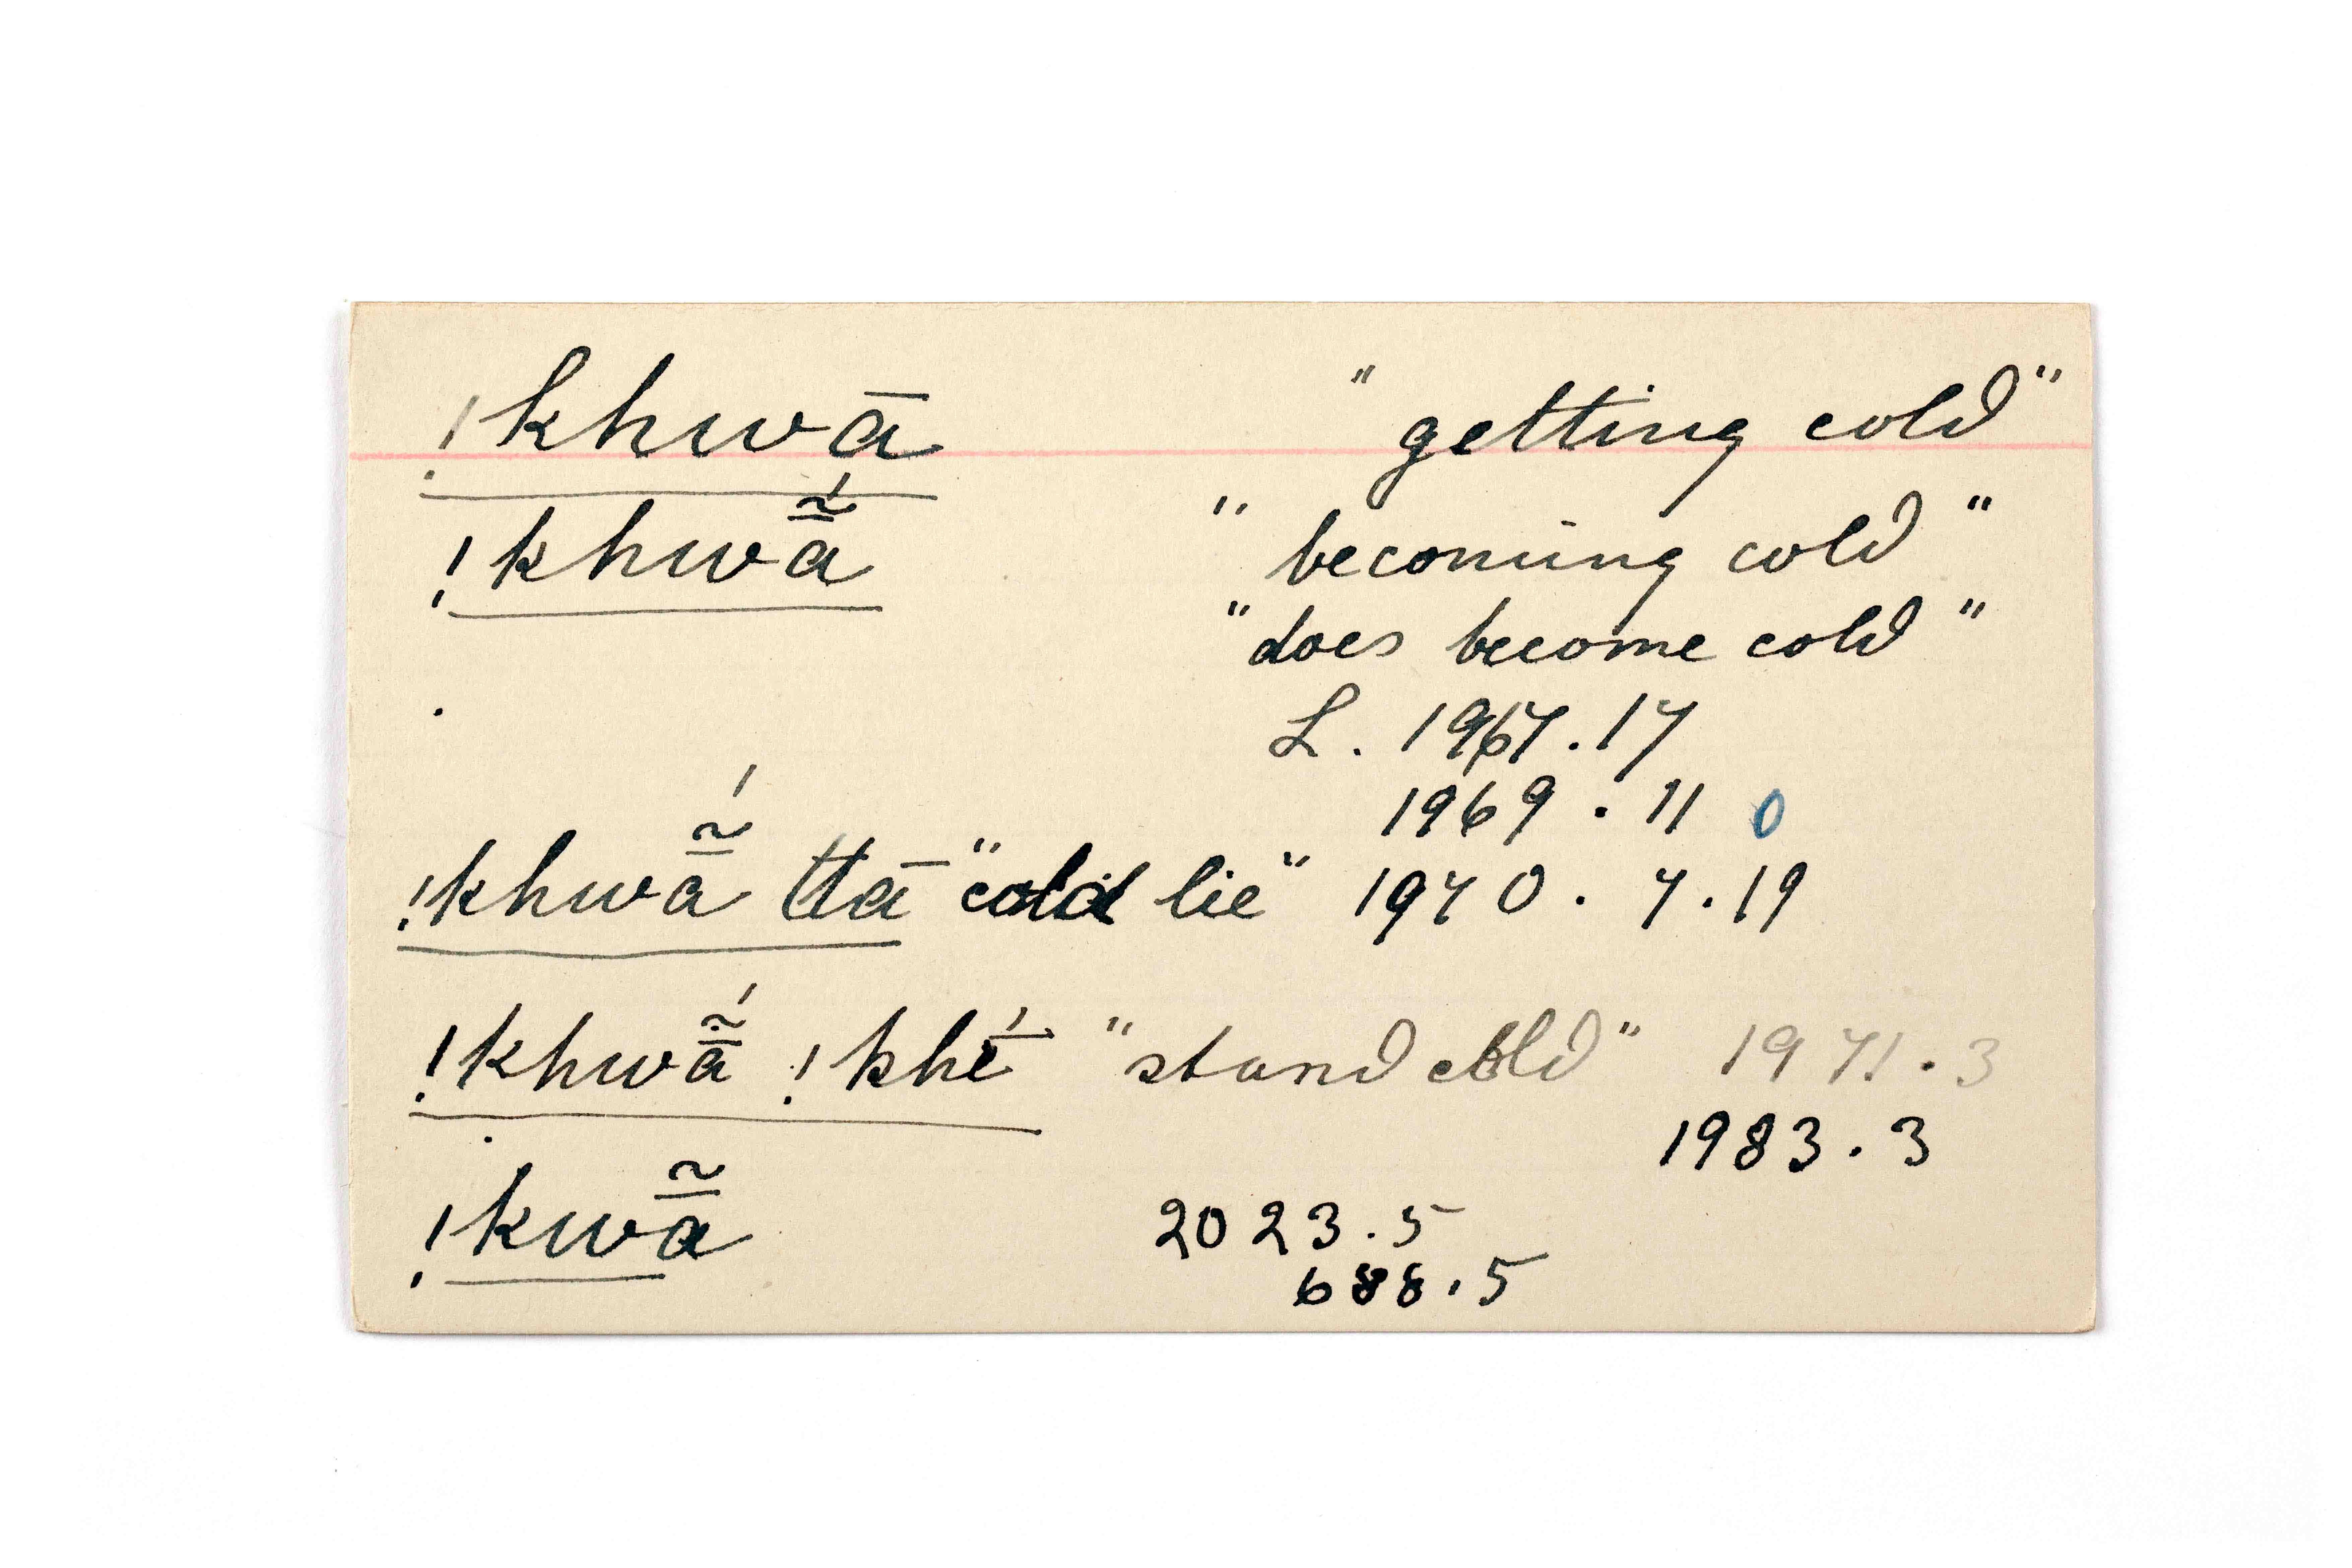 !khwā "getting cold"
!khwā̰̃́ "becoming cold"
"does become cold"
L. 1967.17
1969.11 0
!khwā̃́ ttā "cold lie" 1970.7.19
!khwā̃́ !khé̄ "stand cold" 1971.3
1983.3
!kwā̃ 2023.5
688.5